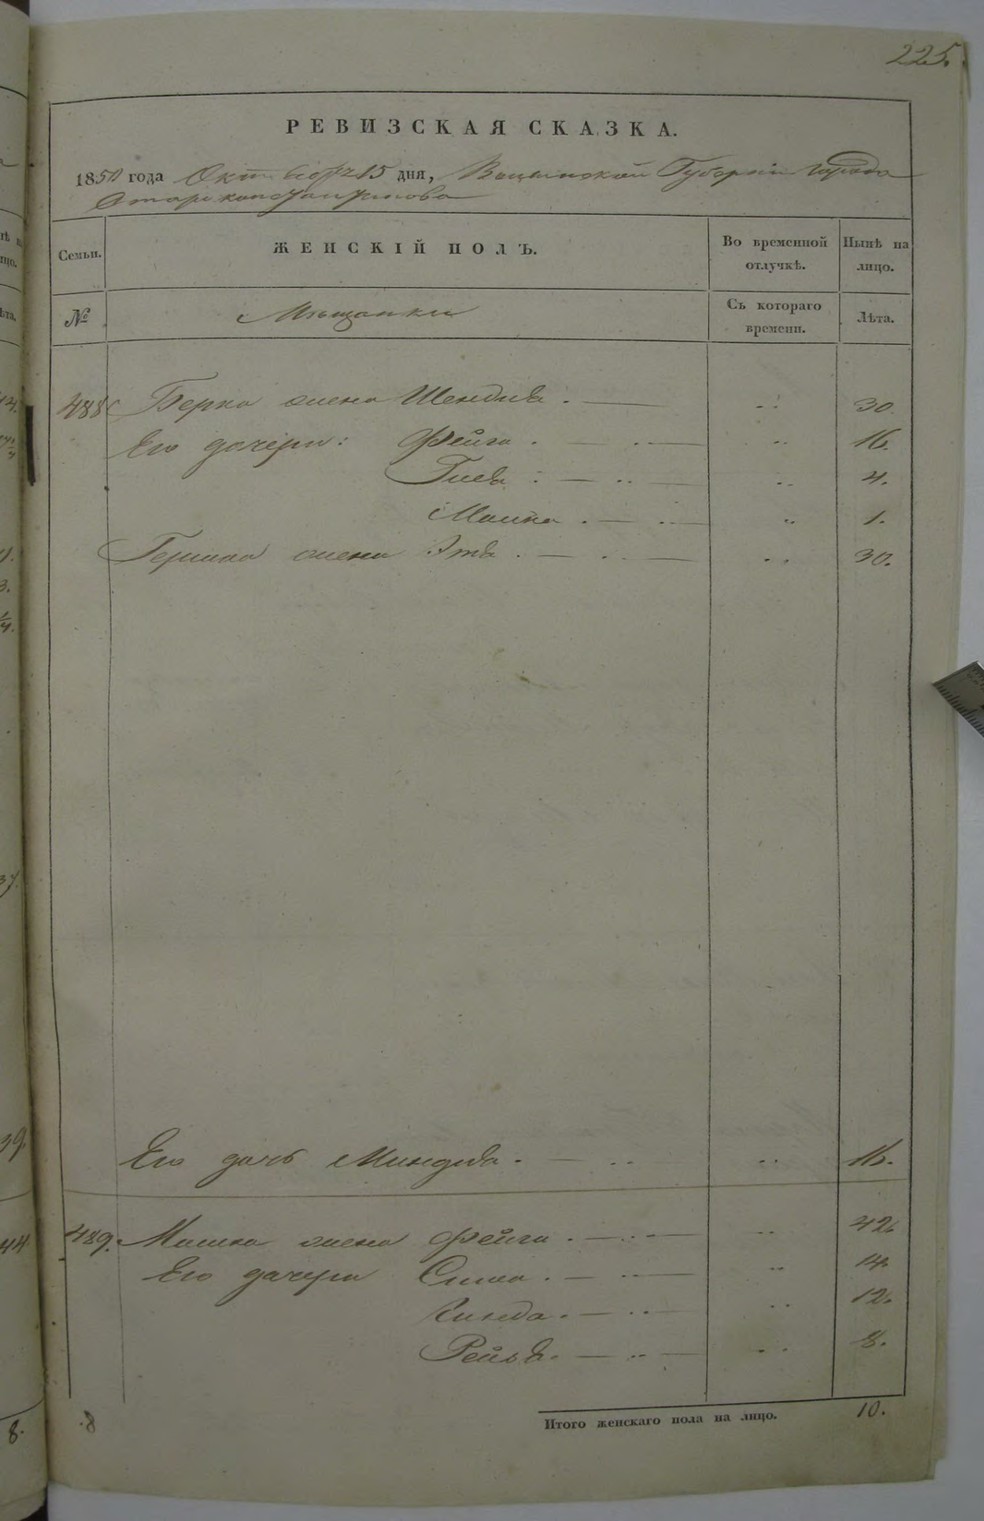 225.
РЕВИЗСКАЯ СКАЗКА.
1850 года Октября 15 дня, Волынской Губернии Города
Староконстантинова
Семьи.
ЖЕНСКІЙ ПОЛЪ.
Во временной отлучкѣ.
Нынѣ на лицо.
№
Мѣщанки
Съ котораго времени.
Лѣта.
488 Берка жена Шендля . — 30
Его дочери: Фейга . — 16.
4.
Малка . — 1.
Гершка жена Этя . — 30.
Его дочь Миндля . — 16.
489. Мошка жена Фейга . — 42.
Его дочери — 14.
12.
Рейзя. — 8.
Итого женскаго пола на лицо. 10.
8.